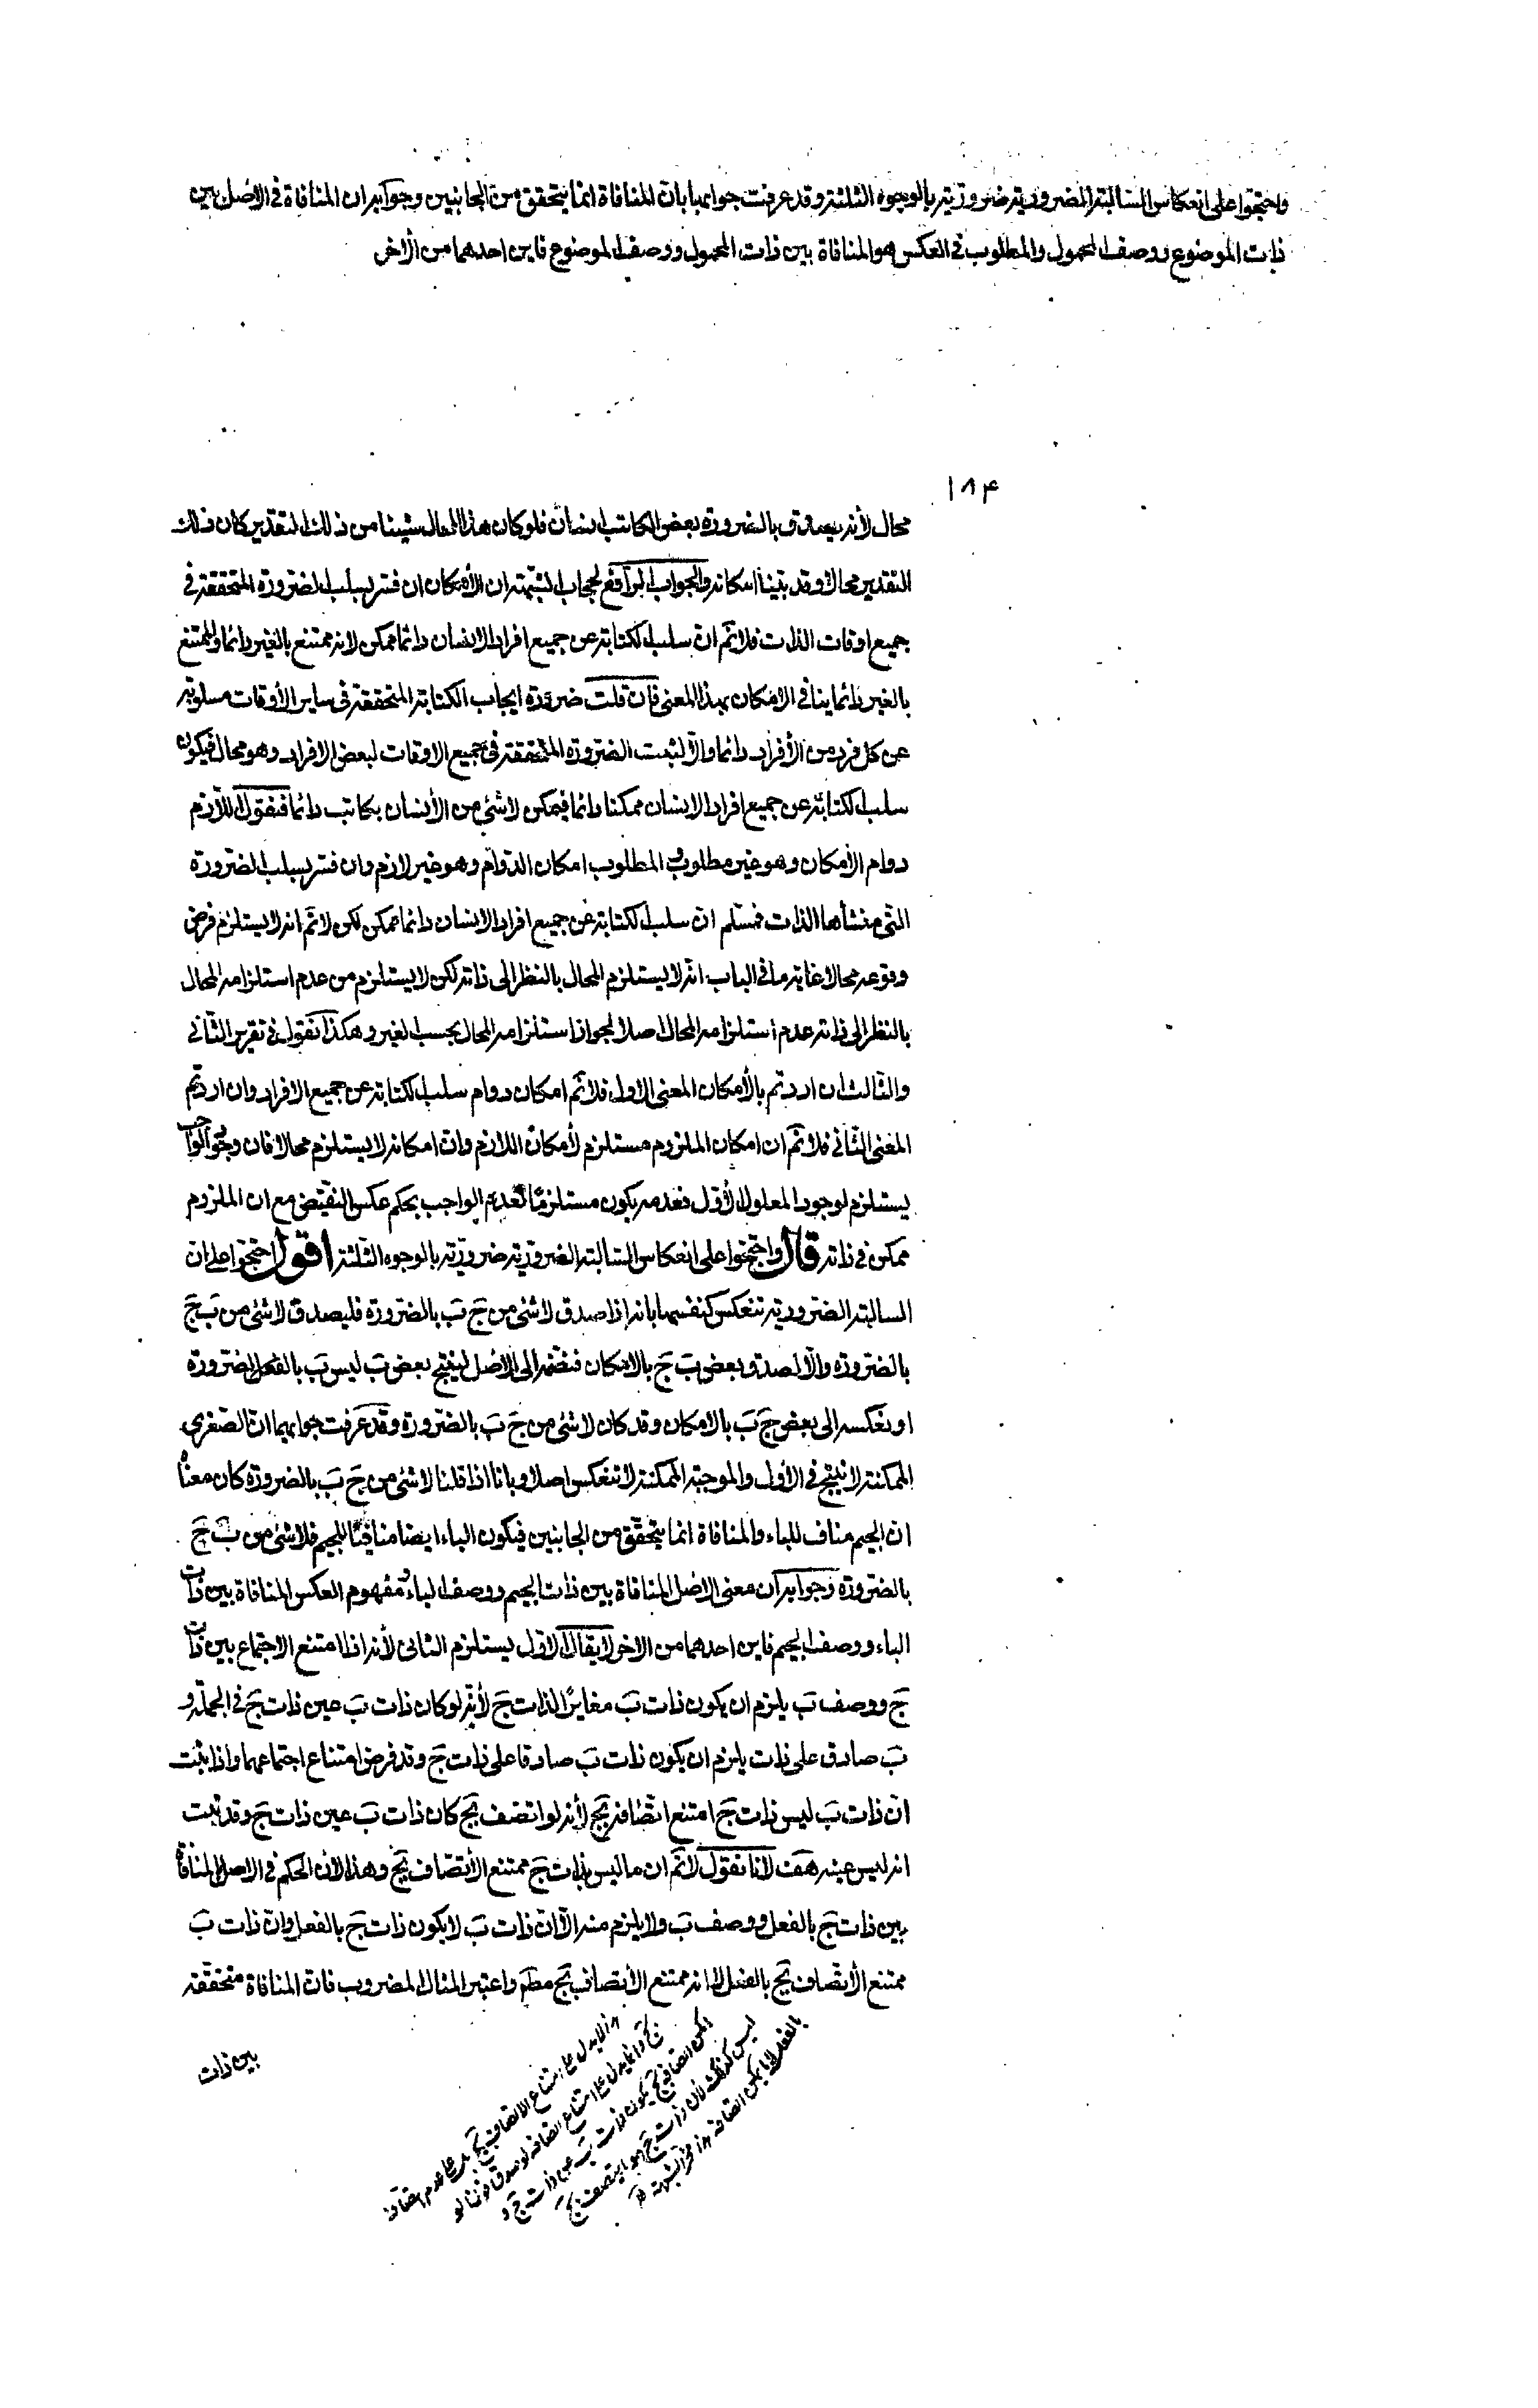 واحتجوا على انعكاس السالبة الضرورية ضرورية بالوجوه الثلثة وقد عرفت جوابها بان المنافاة انما يتحقق من الجانبين وجوابه ان المنافاة فى الاصل بين
ذات الموضوع ووصف المحمول والمطلوب فى العكس هو المنافاة بين ذات المحمول ووصف الموضوع فاين احدهما من الآخر
۱۸۴
محال لأنه يصدق بالضرورة بعض الكاتب انسان فلو كان هذا المحال شيئا من ذلك التقدير كان ذلك
التقدير محالا وقد بينا امكانه والجواب الرافع لحجاب الشبهة ان الأمكان ان فسر بسلب الضرورة المتحققة فى
جميع اوقات الذات فلا نم ان سلب الكتابة عن جميع افراد الانسان دائما ممكن لانه ممتنع بالغير دائما والممتنع
بالغير دائما ينافى الامكان بهذا المعنى فان قلت ضرورة ايجاب الكتابة المتحققة فى ساير الأوقات مسلوبة
عن كل فرد من الأفراد دائما والا لثبت الضرورة المتحققة فى جميع الاوقات لبعض الافراد وهو محال فيكون
سلب الكتابة عن جميع افراد الانسان ممكنا دائما فيمكن لا شئ من الأنسان بكاتب دائما فنقول اللازم
دوام الأمكان وهو غير مطلوب والمطلوب امكان الدوام وهو غير لازم وان فسر بسلب الضرورة
التى منشأها الذات فمسلم ان سلب الكتابة عن جميع افراد الانسان دائما ممكن لكن لا نم انه لا يستلزم فرض
وقوعه محالا غاية ما فى الباب انه لا يستلزم المحال بالنظر الى ذاته لكن لا يستلزم من عدم استلزامه المحال
بالنظر الى ذاته عدم استلزامه المحال اصلا لجواز استلزامه المحال بحسب الغير وهكذا نقول فى تقرير الثانى
والثالث ان اردتم بالأمكان المعنى الاول فلا نم امكان دوام سلب الكتابة عن جميع الافراد وان اردتم
المعنى الثانى فلا نم ان امكان الملزوم مستلزم لأمكان اللازم وان امكانه لا يستلزم محالا فان وجود الواجب
يستلزم لوجود المعلول الأول فعدمه يكون مستلزما لعدم الواجب بحكم عكس النقيض مع ان الملزوم
ممكن فى ذاته قال واحتجوا على انعكاس السالبة الضرورية ضرورية بالوجوه الثلثة اقول احتجوا على ان
السالبة الضرورية تنعكس كنفسها بانه اذا صدق لا شئ من ج ب بالضرورة فليصدق لا شئ من ب ج
بالضرورة والا لصدق بعض ب ج بالامكان فنضمه الى الاصل لينتج بعض ب ليس ب بالفعل الضرورة
او نعكسه الى بعض ج ب بالامكان وقد كان لا شئ من ج ب بالضرورة وقد عرفت جوابهما ان الصغرى
الممكنة لا تنتج فى الأول والموجبة الممكنة لا تنعكس اصلا وبانا اذا قلنا لا شئ من ج ب بالضرورة كان معناه
ان الجيم مناف للباء والمنافاة انما يتحقق من الجانبين فيكون الباء ايضا منافيا للجيم فلا شئ من ب ج
بالضرورة وجوابه ان معنى الاصل المنافاة بين ذات الجيم ووصف الباء ومفهوم العكس المنافاة بين ذات
الباء ووصف الجيم فاين احدهما من الاخر لا يقال الاول يستلزم الثانى لأنه اذا امتنع الاجتماع بين ذات
ج ووصف ب يلزم ان يكون ذات ب مغايرا لذات ج لأنه لو كان ذات ب عين ذات ج فى الجملة و
ب صادق على ذات يلزم ان يكون ذات ب صادقا على ذات ج وقد فرض امتناع اجتماعهما واذا ثبت
ان ذات ب ليس ذات ج امتنع اتصافه بج لأنه لو اتصف بج كان ذات ب عين ذات ج وقد ثبت
انه ليس عينه هف لانا نقول لا نم ان ما ليس بذات ج ممتنع الأتصاف بج وهذا لان الحكم فى الاصل المنافاة
بين ذات ج بالفعل ووصف ب ولا يلزم منه الا ان ذات ب لا يكون ذات ج بالفعل وان ذات ب
ممتنع الأتصاف بج بالفعل لا انه ممتنع الأتصاف بج مطم واعتبر المثال المضروب فان المنافاة متحققة
بين ذات
لا يدل على امتناع الاتصاف بج بل على عدم اتصافه
بج وانما يدل على امتناع اتصافه لو صدق قولنا لو
امكن اتصافه بج يكون ذات ب عين ذات ج و
ليس كذلك لأن ذات ج هو ما يتصف بج
بالفعل لا ما يمكن اتصافه